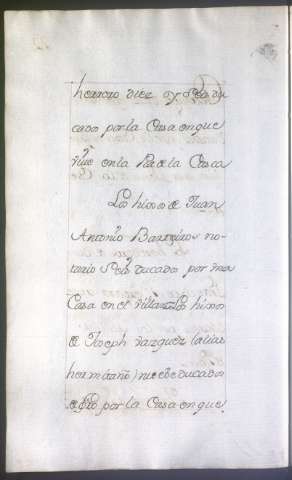 herrero diez y seis du
cados por la Casa en que
vive en la Pla de la Cosca
Los hijos de Juan
Antonio Barreiros no
tario seis ducados por una
Casa en el villar Los hijos
de Joseph Vazquez (alias
hermitaño) nuebe ducados
por la Casa en que